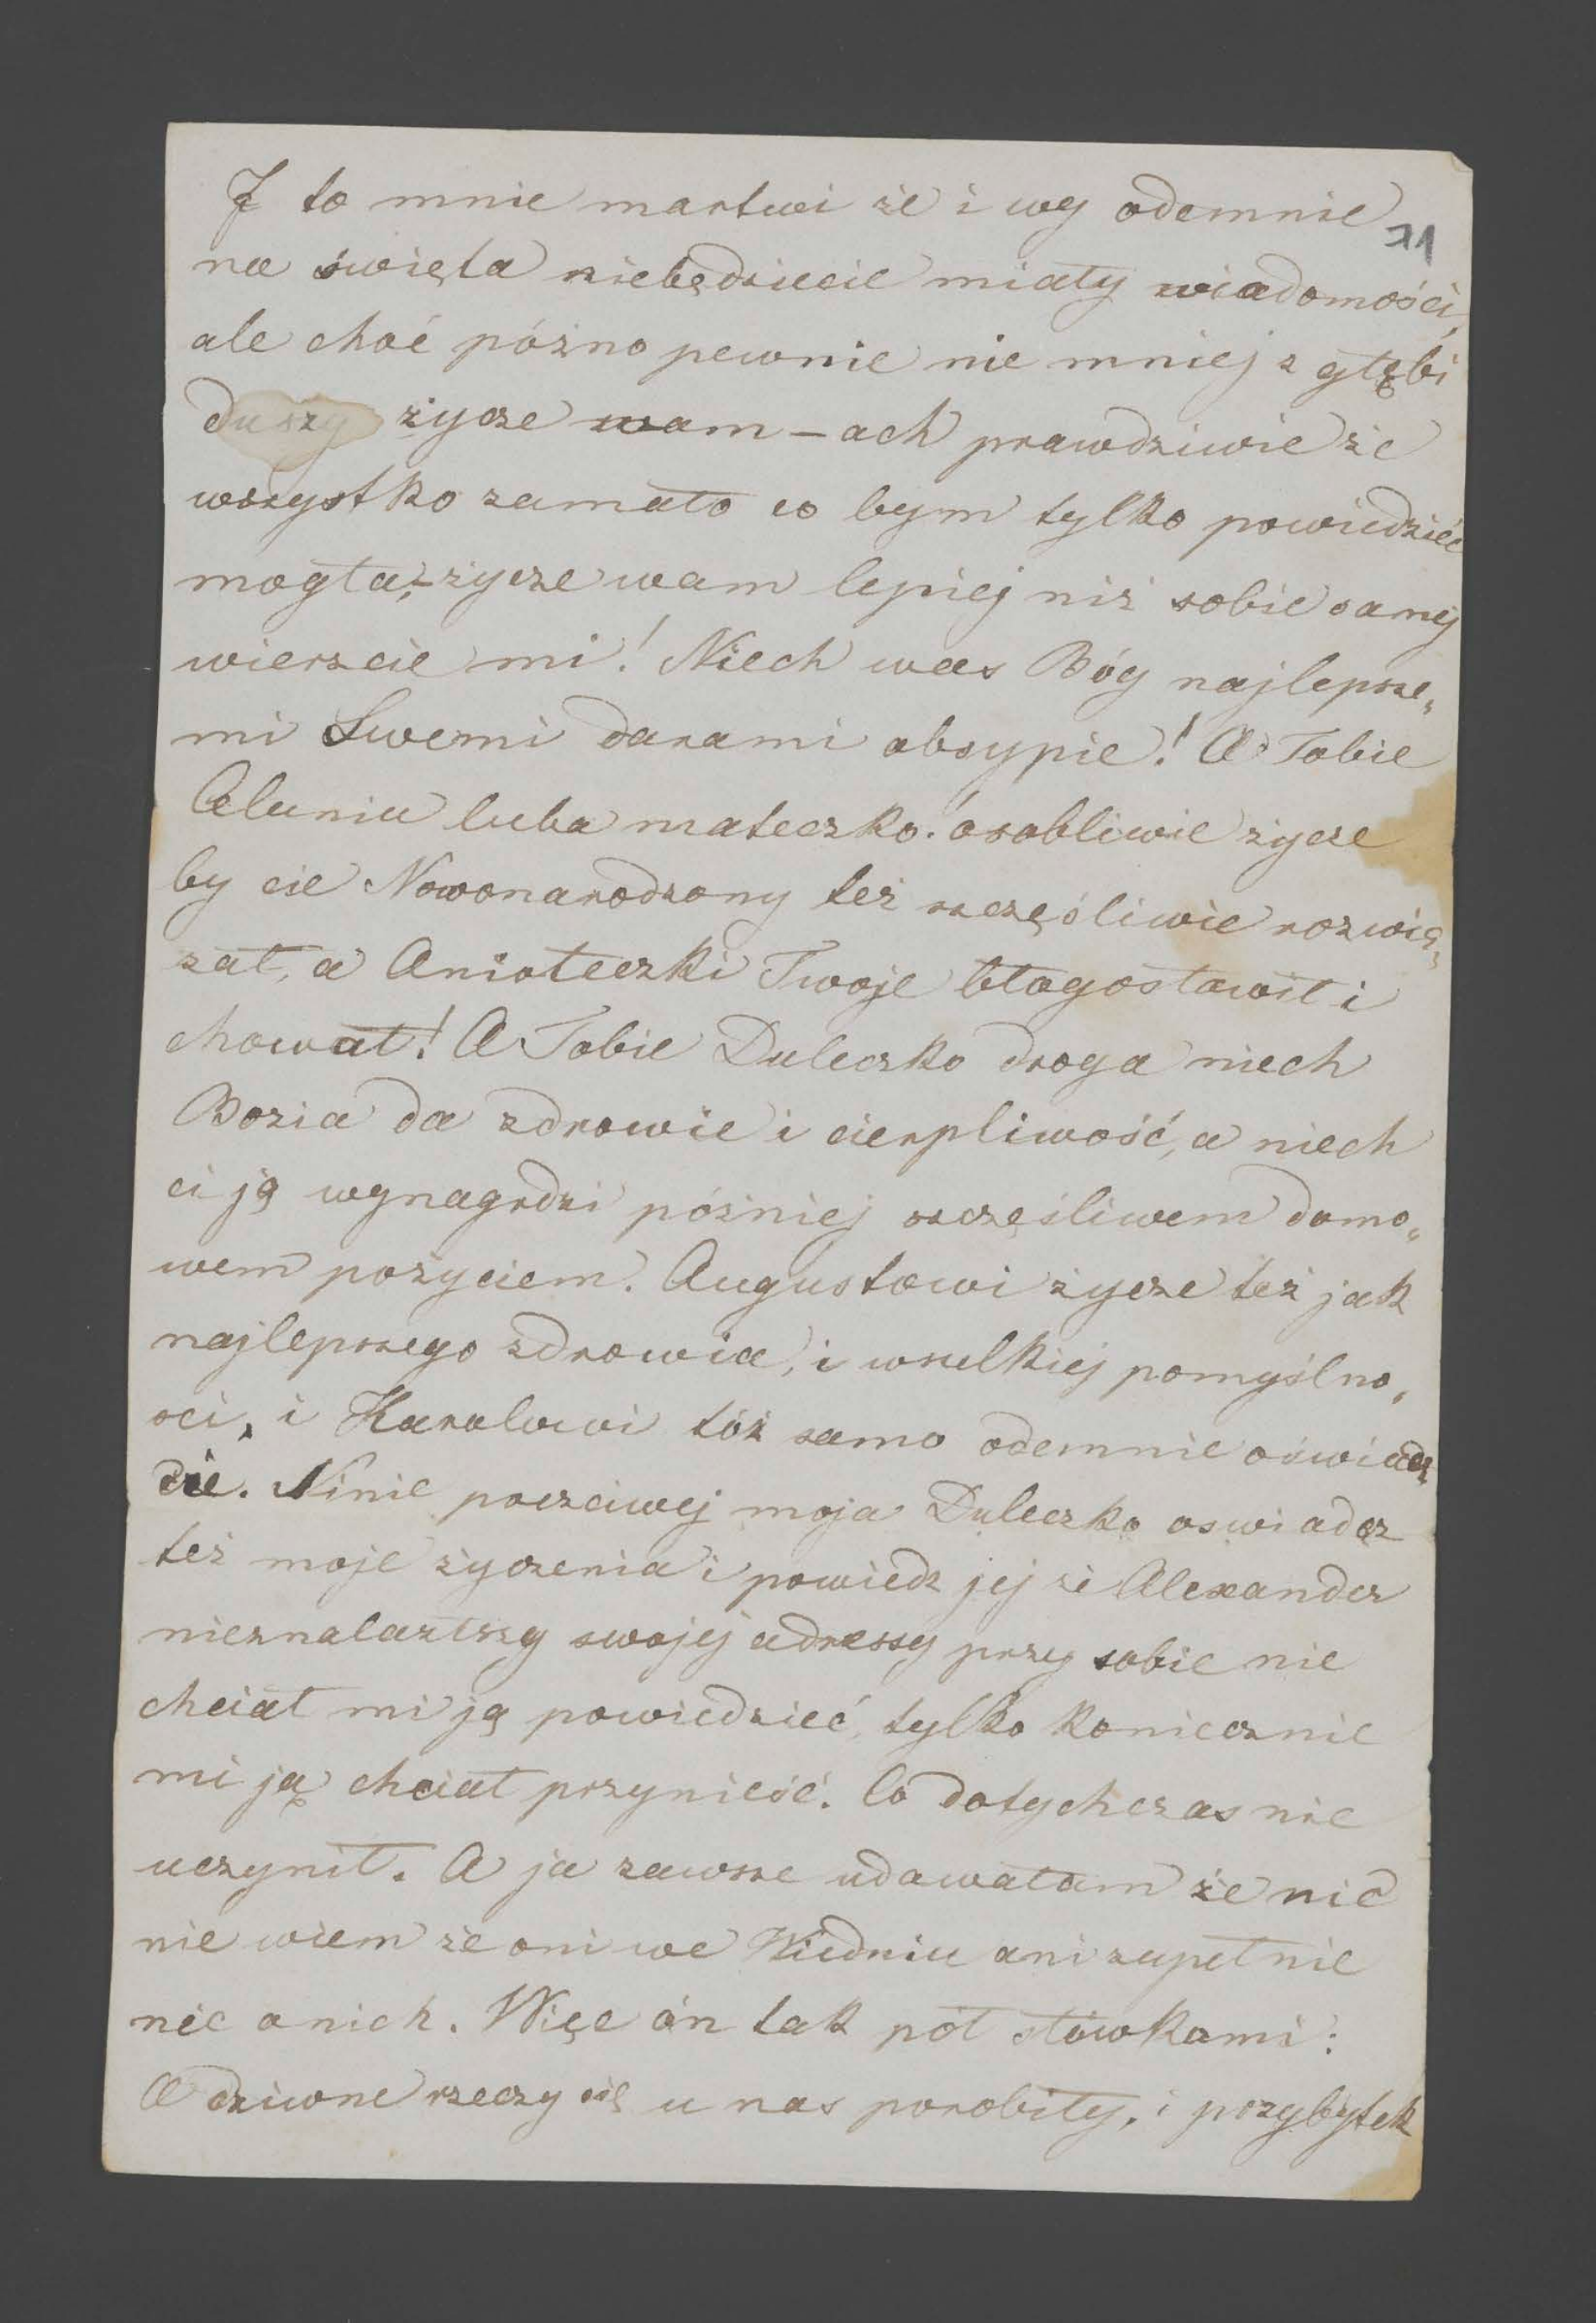 I to mnie martwi że i wy odemnie
71
na święta niebędziecie miały wiadomości,
ale choć późno pewnie nie mniej z głębi
duszy życze wam – ach prawdziwie że
wszystko zamało co bym tylko powiedzieć
mogła, – życze wam lepiej niż sobie samej
wierzcie mi! Niech was Bóg najlepsze„
mi Swemi darami obsypie! A Tobie
Aluniu luba mateczko osobliwie życze
by cie Nowonarodzony też szczęśliwie rozwią„
zał, a Aniołeczki Twoje błogosławił i
chował! A Tobie Duleczko droga niech
Bozia da zdrowie i cierpliwość, a niech
ci ją wynagrdzi później szczęśliwem domo„
wem pożyciem. Augustowi życze też jak
najlepszego zdrowia, i wszelkiej pomyślno„
sci, i Karolowi tóż samo odemnie oświadcz
cie. Ninie poczciwej moja Duleczko oswiadcz
też moje życzenia i powiedz jej że Alexander
nieznalazłszy swojej adressy przy sobie nie
chciał mi ją powiedzieć, tylko koniecznie
mi ją chciał przynieść. Co dotychczas nie
uczynił. A ja zawsze udawałam że nic
nie wiem że oni we Wiedniu ani zupełnie
nic o nich. Więc ón tak pół słówkami:
A dziwne rzeczy się u nas porobiły, i przybytek